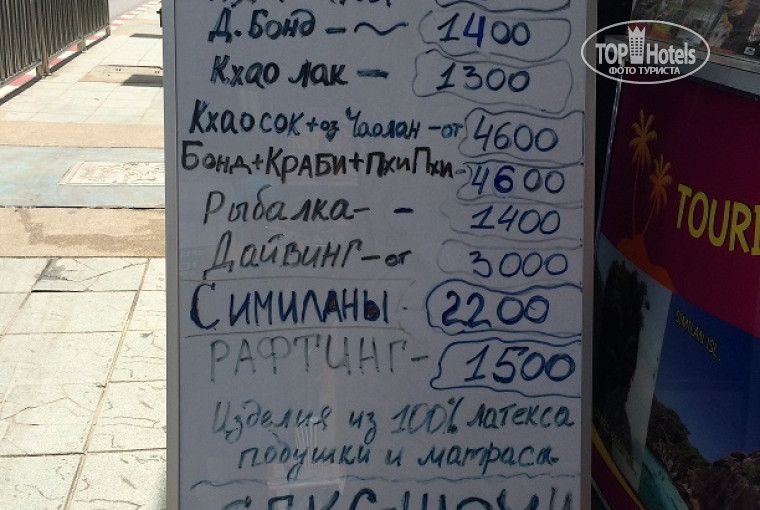 Д. Бонд - ~ 1400
Кхао лак - 1300
Кхаосок+оз Чаолан -от 4600
Бонд+Краби+ПхиПхи- 4600
Рыбалка- - 1400
Дайвинг-от 3000
Симиланы - 2200
Рафтинг- 1500
Изделия из 100% латекса
подушки и матрасы.
TOP Hotels
ФОТО ТУРИСТА
TOURI
SIMILAN ISL.